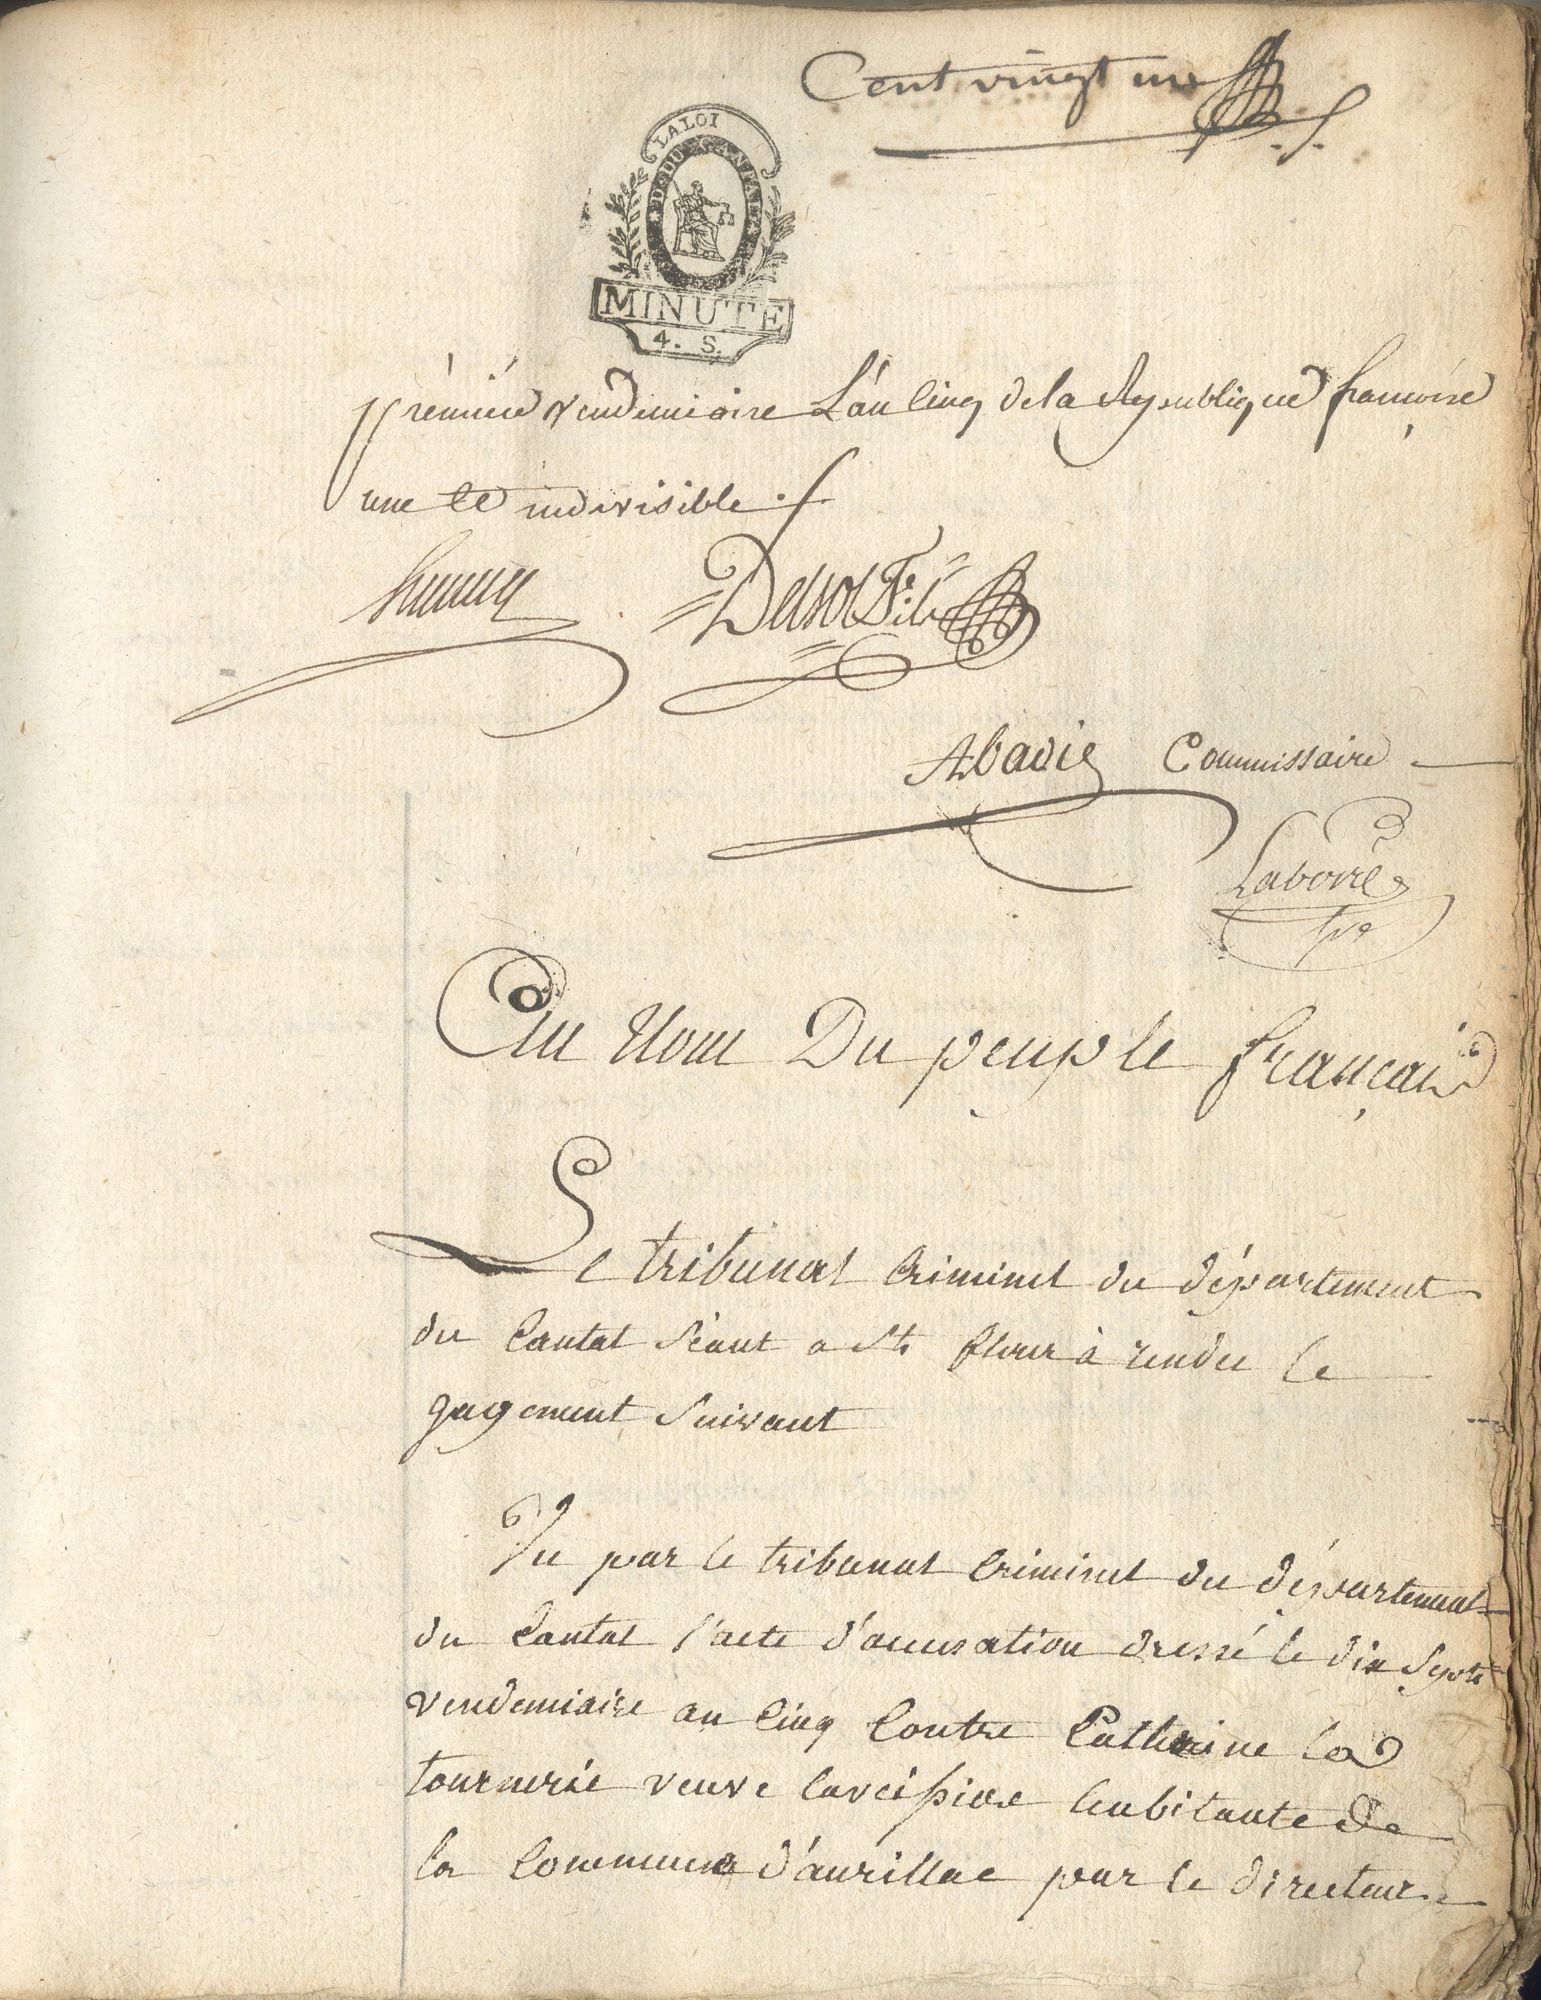 Cent vingt un
LA LOI
D. DU CANTAL
MINUTE
4. S.
premiere vendemiaire L'an Cinq de la Republique francoise
une et indivisible
Delsol
Abadie Commissaire
Au Nom Du peuple français
Le tribunal Criminel du département
du Cantal séant a st flour à rendu le
gugement suivant
Vu par le tribunal Criminel du département
du Cantal l'acte d'accusation dressé le dix sept
vendemiaire an Cinq Contre Catherine la
tournerie veuve habitante de
la Commune d'aurillac par le directeur